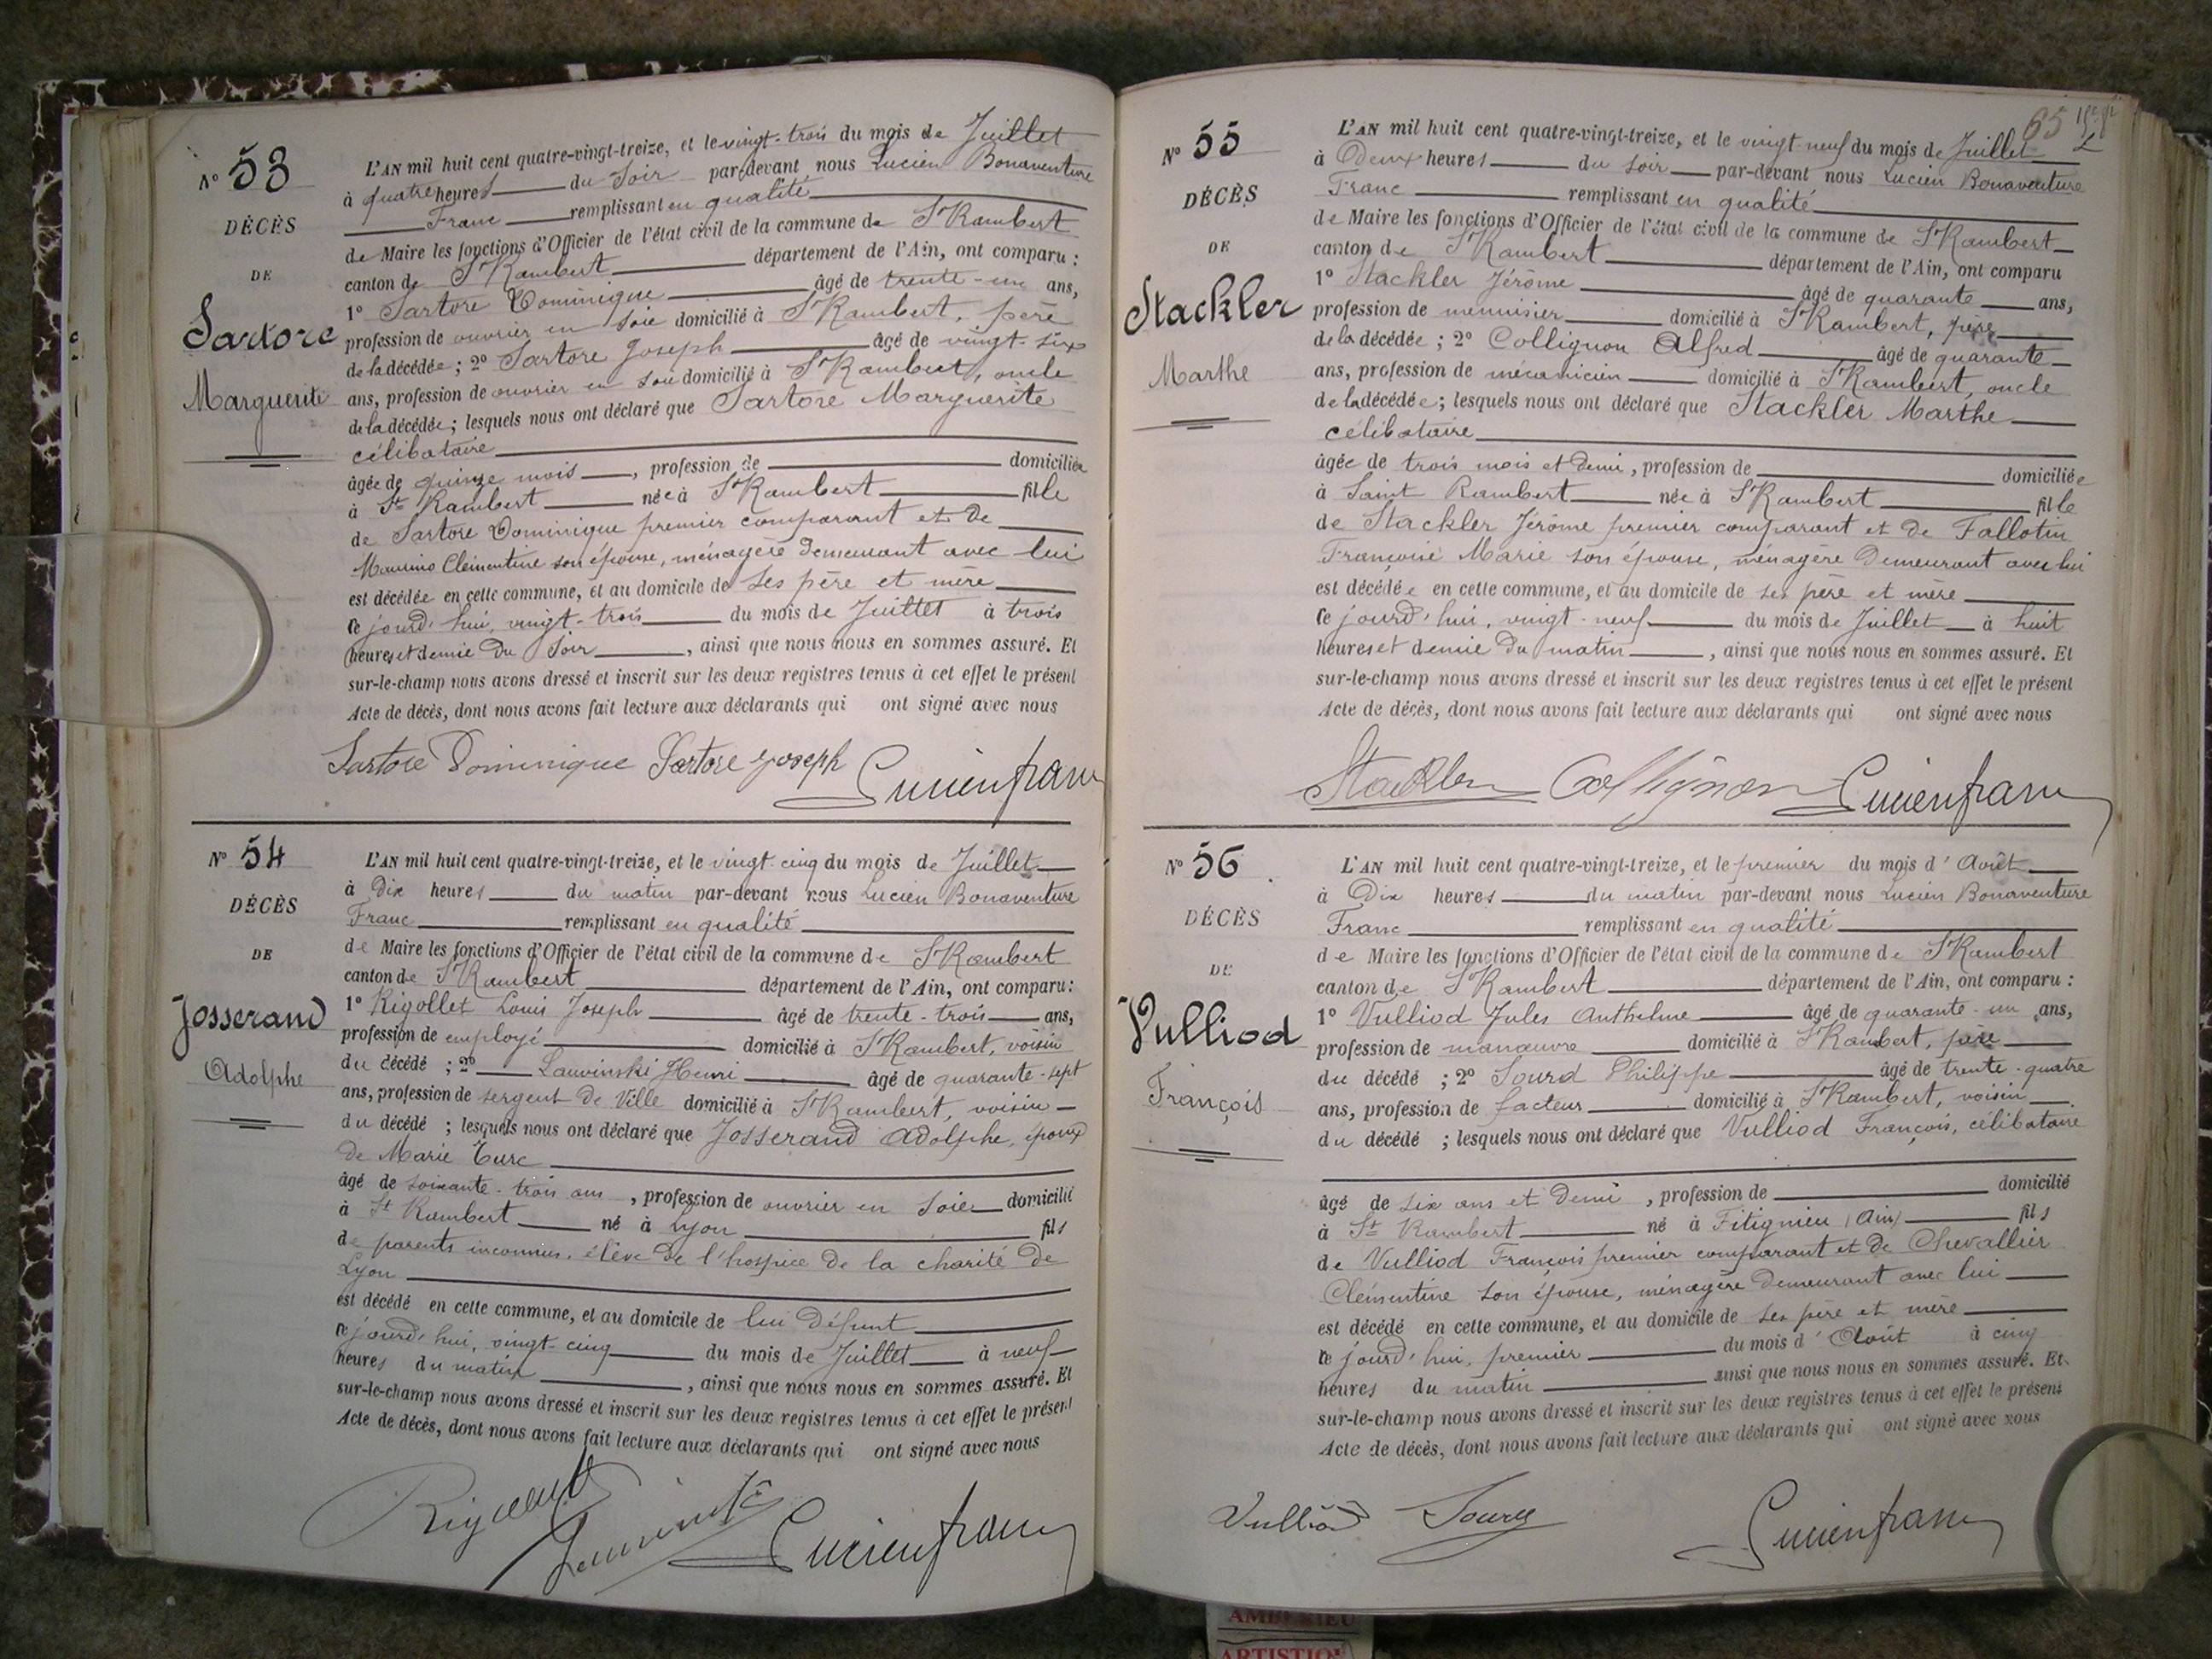 N° 53
DÉCÈS
DE
Sartore
Marguerite
L'AN mil huit cent quatre-vingt-treize, et le vingt-trois du mois de Juillet
à quatre heures du Soir par-devant nous Lucien Bonaventure
Franc remplissant en qualité
de Maire les fonctions d'Officier de l'état civil de la commune de St Rambert
canton de St Rambert département de l'Ain, ont comparu :
1° Sartore Dominique âgé de trente-un ans,
profession de ouvrier en soie domicilié à St Rambert, père
de la décédée ; 2° Sartore Joseph âgé de vingt-six
ans, profession de ouvrier en soie domicilié à St Rambert, oncle
de la décédée ; lesquels nous ont déclaré que Sartore Marguerite
célibataire
âgée de quinze mois, profession de domiciliée
à St Rambert née à St Rambert fille
de Sartore Dominique premier comparant et de
Clémentine son épouse, ménagère demeurant avec lui
est décédée en cette commune, et au domicile de ses père et mère
ce jourd'hui, vingt-trois du mois de Juillet à trois
heures et demie du Soir, ainsi que nous nous en sommes assuré. Et
sur-le-champ nous avons dressé et inscrit sur les deux registres tenus à cet effet le présent
Acte de décès, dont nous avons fait lecture aux déclarants qui ont signé avec nous
Sartore Dominique Sartore Joseph Lucien franc
N° 54
DÉCÈS
DE
Josserand
Adolphe
L'AN mil huit cent quatre-vingt-treize, et le vingt-cinq du mois de Juillet
à Dix heures du matin par-devant nous Lucien Bonaventure
Franc remplissant en qualité
de Maire les fonctions d'Officier de l'état civil de la commune de St Rambert
canton de St Rambert département de l'Ain, ont comparu :
1° Rigollet Louis Joseph âgé de trente-trois ans,
profession de employé domicilié à St Rambert, voisin
du décédé ; 2° Lauvinski Henri âgé de quarante-sept
ans, profession de sergent de Ville domicilié à St Rambert, voisin
du décédé ; lesquels nous ont déclaré que Josserand Adolphe, époux
de Marie Turc
âgé de soixante-trois ans, profession de ouvrier en soie domicilié
à St Rambert né à Lyon fils
de parents inconnus, élève de l'hospice de la charité de
Lyon
est décédé en cette commune, et au domicile de lui défunt
ce jourd'hui, vingt-cinq du mois de Juillet à neuf
heures du matin, ainsi que nous nous en sommes assuré. Et
sur-le-champ nous avons dressé et inscrit sur les deux registres tenus à cet effet le présent
Acte de décès, dont nous avons fait lecture aux déclarants qui ont signé avec nous
Lucien franc
65
N° 55
DÉCÈS
DE
Stackler
Marthe
L'AN mil huit cent quatre-vingt-treize, et le vingt-neuf du mois de Juillet
à Deux heures du soir par-devant nous Lucien Bonaventure
Franc remplissant en qualité
de Maire les fonctions d'Officier de l'état civil de la commune de St Rambert
canton de St Rambert département de l'Ain, ont comparu
1° Stackler Jérôme âgé de quarante ans,
profession de menuisier domicilié à St Rambert, père
de la décédée ; 2° Collignon Alfred âgé de quarante
ans, profession de mécanicien domicilié à St Rambert, oncle
de la décédée ; lesquels nous ont déclaré que Stackler Marthe
célibataire
âgée de trois mois et demi, profession de domiciliée
à Saint Rambert née à St Rambert fille
de Stackler Jérôme premier comparant et de Fallotin
Françoise Marie son épouse, ménagère demeurant avec lui
est décédée en cette commune, et au domicile de ses père et mère
ce jourd'hui, vingt-neuf du mois de Juillet à huit
heures et demie du matin, ainsi que nous nous en sommes assuré. Et
sur-le-champ nous avons dressé et inscrit sur les deux registres tenus à cet effet le présent
Acte de décès, dont nous avons fait lecture aux déclarants qui ont signé avec nous
Stackler Collignon Lucien franc
N° 56
DÉCÈS
DE
Vulliod
François
L'AN mil huit cent quatre-vingt-treize, et le premier du mois d'Août
à Dix heures du matin par-devant nous Lucien Bonaventure
Franc remplissant en qualité
de Maire les fonctions d'Officier de l'état civil de la commune de St Rambert
canton de St Rambert département de l'Ain, ont comparu :
1° Vulliod Jules Anthelme âgé de quarante-un ans,
profession de manœuvre domicilié à St Rambert, père
du décédé ; 2° Sourd Philippe âgé de trente-quatre
ans, profession de facteur domicilié à St Rambert, voisin
du décédé ; lesquels nous ont déclaré que Vulliod François, célibataire
âgé de six ans et demi, profession de domicilié
à St Rambert né à Fitignieu (Ain) fils
de Vulliod François premier comparant et de Chevallier
Clémentine son épouse, ménagère demeurant avec lui
est décédé en cette commune, et au domicile de ses père et mère
ce jourd'hui, premier du mois d'Août à cinq
heures du matin ainsi que nous nous en sommes assuré. Et
sur-le-champ nous avons dressé et inscrit sur les deux registres tenus à cet effet le présent
Acte de décès, dont nous avons fait lecture aux déclarants qui ont signé avec nous
Vulliod Sourd Lucien franc